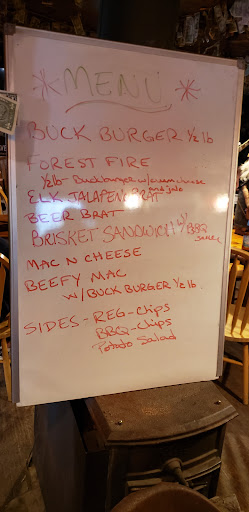 * MENU *
BUCK BURGER 1/2 lb
FOREST FIRE
1/2 lb - Buckburger w/cream cheese and jala
ELK JALAPEN BRAT
BEER BRAT
BRISKET SANDWICH w/ BBQ sauce
MAC N CHEESE
BEEFY MAC
w/ BUCK BURGER 1/2 lb
SIDES - REG - Chips
BBQ - Chips
Potato Salad